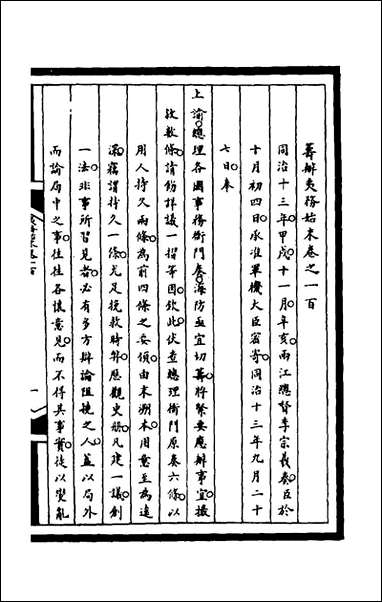 籌辦夷務始末卷之一百
同治十三年甲戌十一月辛亥兩江總督李宗羲奏臣於
十月初四日承准軍機大臣密寄同治十三年九月二十
七日奉
上諭總理各國事務衙門奏海防亟宜切籌將緊要應辦事宜撮
敘數條請飭詳議一摺等因欽此伏查總理衙門原奏六條以
用人持久兩條為前四條之要領由末溯本用意至為遠
深竊謂持久一條尤足挽救時弊歷觀史冊凡建一議創
一法非事所習見者必有多方辯論阻撓之人蓋以局外
而論局中之事往往各懷意見而不得其事實徒以變亂